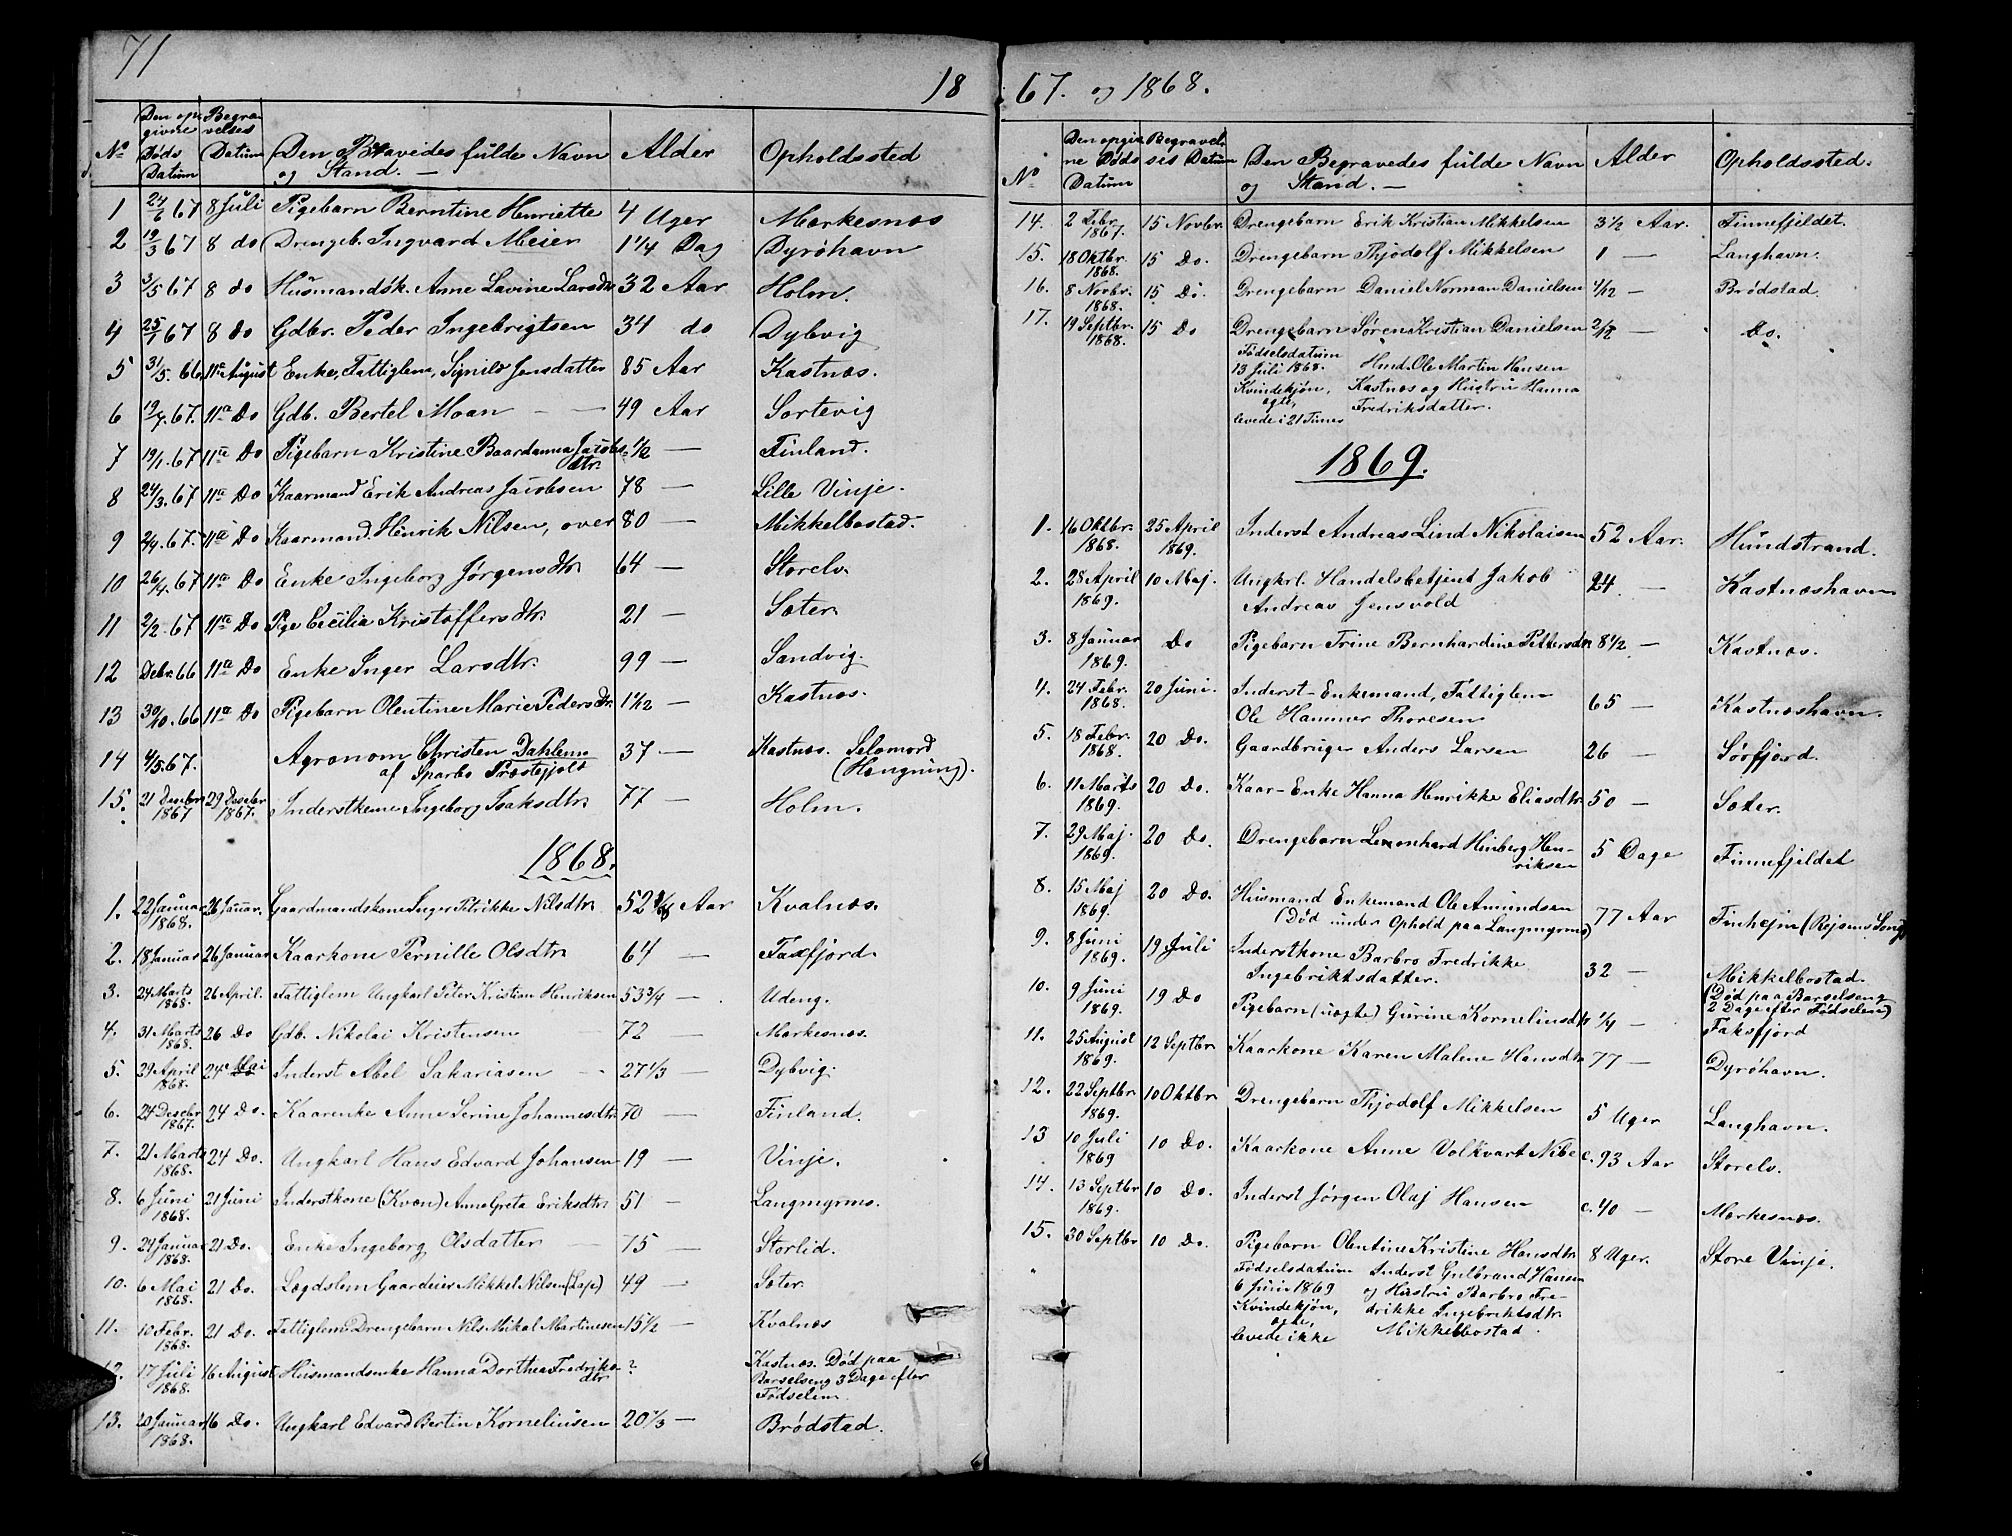 71
18
Den op-
givne
Døds
Datum
Begra-
velses
Datum
No
Den Bravedes fulde Navn
og Stand. —
Alder
Opholdssted
1 24/6 67 8 Juli Pigebarn Berntine Henriette 4 Uger Mærkesnæs
2 19/3 67 8 do Drengeb. Ingvard Meier 1 1/4 Dag Dyröhavn
3 3/5 67 8 do Husmandsk. Anne Lavine Larsdtr 32 Aar Holm.
4 25/1 67 8 do Gdbr. Peder Ingebrigtsen 34 do Dybvig
5 31/5. 66. 11te August Enke, Fattiglem, Signild Jensdatter 85 Aar Kastnæs.
6 19/7. 67. 11te Do Gdb. Bertel Moan — — 49 Aar Sortevig
7 19/1. 67 11te Do Pigebarn Kristine Baardanna Jacobs- 1/2 — Finland.
dtr.
8 24/3. 67 11te Do Kaarmand Erik Andreas Jacobsen 78 — Lille Vinje.
9 2/4. 67. 11te Do Kaarmand. Henrik Nilsen, over 80 — Mikkelbostad.
10 26/4. 67 11te Do Enke Ingeborg Jørgensdtr. 64 — Storelv.
11 2/2. 67 11te Do Pige Cecilia Kristoffersdtr. 21 — Sæter.
12 Debr. 66 11te Do Enke Inger Larsdtr. 99 — Sandvig.
13 30/10. 66 11te Do Pigebarn Olentine Marie Pedersdtr. 1 1/12 — Kastnæs.
14 4/5. 67. Agronom Christen Dahlem 37. — Kastnæs. Selvmord
af Sparbo Præstegjeld (Hængning).
15. 21 Desebr 1867 29 Desebr 1867. Inderstkone Ingeborg Isaksdtr. 77 — Holm.
1868.
1. 22 Januar 1868. 26 Januar. Gaardmandskone Inger Petrikke Nilsdtr. 52 Aar Kvalnæs.
2. 18 Januar 26 Januar Kaarkone Pernille Olsdtr. 64 — Faxfjord.
3. 24 Marts 1868. 26 April. Fattiglem Ungkarl Peter Kristian Henriksen 53 3/4 — Udeng.
4. 31 Marts 1868. 26 Do Gdb. Nikolai Kristensen 72 — Mærkesnæs.
5. 29 April 1868. 24 Mai Inderst Abel Sakariasen — 27 1/3 — Dybvig.
6. 24 Desebr 1867. 24 Do. Kaarenke Anne Serine Johannesdtr. 70 — Finland.
7. 21 Marts 1868. 24 Do. Ungkarl Hans Edvard Johansen 19 — Vinje.
8. 6 Juni 1868. 21 Juni Inderstkone (Kvæn) Anna Greta Eriksdtr. 51 — Langmyrmo.
9. 24 Januar 1868. 21 Do. Enke Ingeborg Olsdatter — 75 — Storlid.
10. 6 Mai 1868. 21 Do. Lægdslem Gaardeier Mikkel Nilsen (Lap) 49 — Sæter
11. 10 Febr. 1868. 21 Do. Fattiglem Drengebarn Nils Mikal Martinesen 15 1/2 — Kvalnæs
12. 17 Juli 1868. 16 August Husmandsenke Hanna Dorthea Fredriks- ? Kastnæs. Død paa
dtr Barselseng 3 Dage efter
Fødselen.
13. 20 Januar 1868. 16 Do. Ungkarl Edvard Bertin Korneliusen 20 1/3 — Brødstad.
67. og 1868.
No
Den opgiv-
ne Døds
Datum
Begravel-
ses Datum
Den Begravedes fulde Navn
og Stand. —
Alder
Opholdssted.
14. 2 Febr. 1867. 15 Novbr. Drengebarn Erik Kristian Mikkelsen 3 1/2 Aar. Finnefjeldet.
15. 18 Oktbr. 1868. 15 Do. Drengebarn Thjodolf Mikkelsen 1 — Langhavn.
16. 8 Novbr. 1868. 15 Do. Drengebarn Daniel Norman Danielsen 4/12 — Brødstad.
17. 19 Septbr. 1868. 15 Do Drengebarn Søren Kristian Danielsen 2/12 — Do.
Fødselsdatum
13 Juli 1868. Hmd. Ole Martin Hansen
Kvindekjøn, Kastnæs og Hustru Hanna
ægte, Fredriksdatter.
levede i 21 Timer
1869.
1. 16 Oktbr. 1868. 25 April 1869. Inderst Andreas Lind Nikolaisen 52 Aar. Hundstrand.
2. 28 April 1869. 10 Maj. Ungkrl. Handelsbetjent Jakob 24 — Kastnæshavn
Andreas Jensvold
3. 8 Januar 1869. Do Pigebarn Trine Bernhardine Pettersdtr 8 1/2 — Kastnæs.
4. 24 Febr. 1868. 20 Juni. Inderst-Enkemand, Fattiglem 65 — Kastnæshavn.
Ole Hammer Thoresen
5. 18 Febr. 1868. 20 Do. Gaardbruger Anders Larsen 26 — Sörfjord.
6. 11 Marts 1869. 20 Do. Kaar-Enke Hanna Henrikke Eliasdtr. 50 — Sæter.
7. 29 Maj. 1869. 20 Do. Drengebarn Leonhard Hinberg Hen- 5 Dage Finnefjeldet
riksen
8. 15 Maj 1869. 20 Do. Husmand Enkemand Ole Amundsen 77 Aar
(Død under Ophold paa Langmyrmo)
9. 8 Juni 1869. 19 Juli Inderstkone Barbro Fredrikke 32 — Mikkelbostad.
Ingebriktsdatter. (Død paa Barselseng
2 Dage efter Fødselen)
10. 9 Juni 1869. 19 Do Pigebarn (uægte) Gurine Korneliusdtr 1/4 — Faksfjord
11. 25 August 1869. 12 Septbr. Kaarkone Karen Malene Hansdtr 77 — Dyröhavn.
12. 22 Septbr 1869. 10 Oktbr. Drengebarn Thjodolf Mikkelsen 5 Uger Langhavn.
13 10 Juli 1869 10 Do. Kaarkone Anne Volkvart Nibe c. 93 Aar Storelv.
14. 13 Septbr 1869. 10 Do. Inderst Jørgen Olaj Hansen c. 40 — Mærkesnæs.
15. 30 Septbr 10 Do. Pigebarn Olentine Kristine Hansdtr. 8 Uger. Store Vinje.
Fødselsdatum Inderst Gulbrand Hansen
6 Juni 1869 og Hustru Barbro Fre-
Kvindekjøn, drikke Ingebriktsdtr.
ægte, Mikkelbostad.
levede ikke